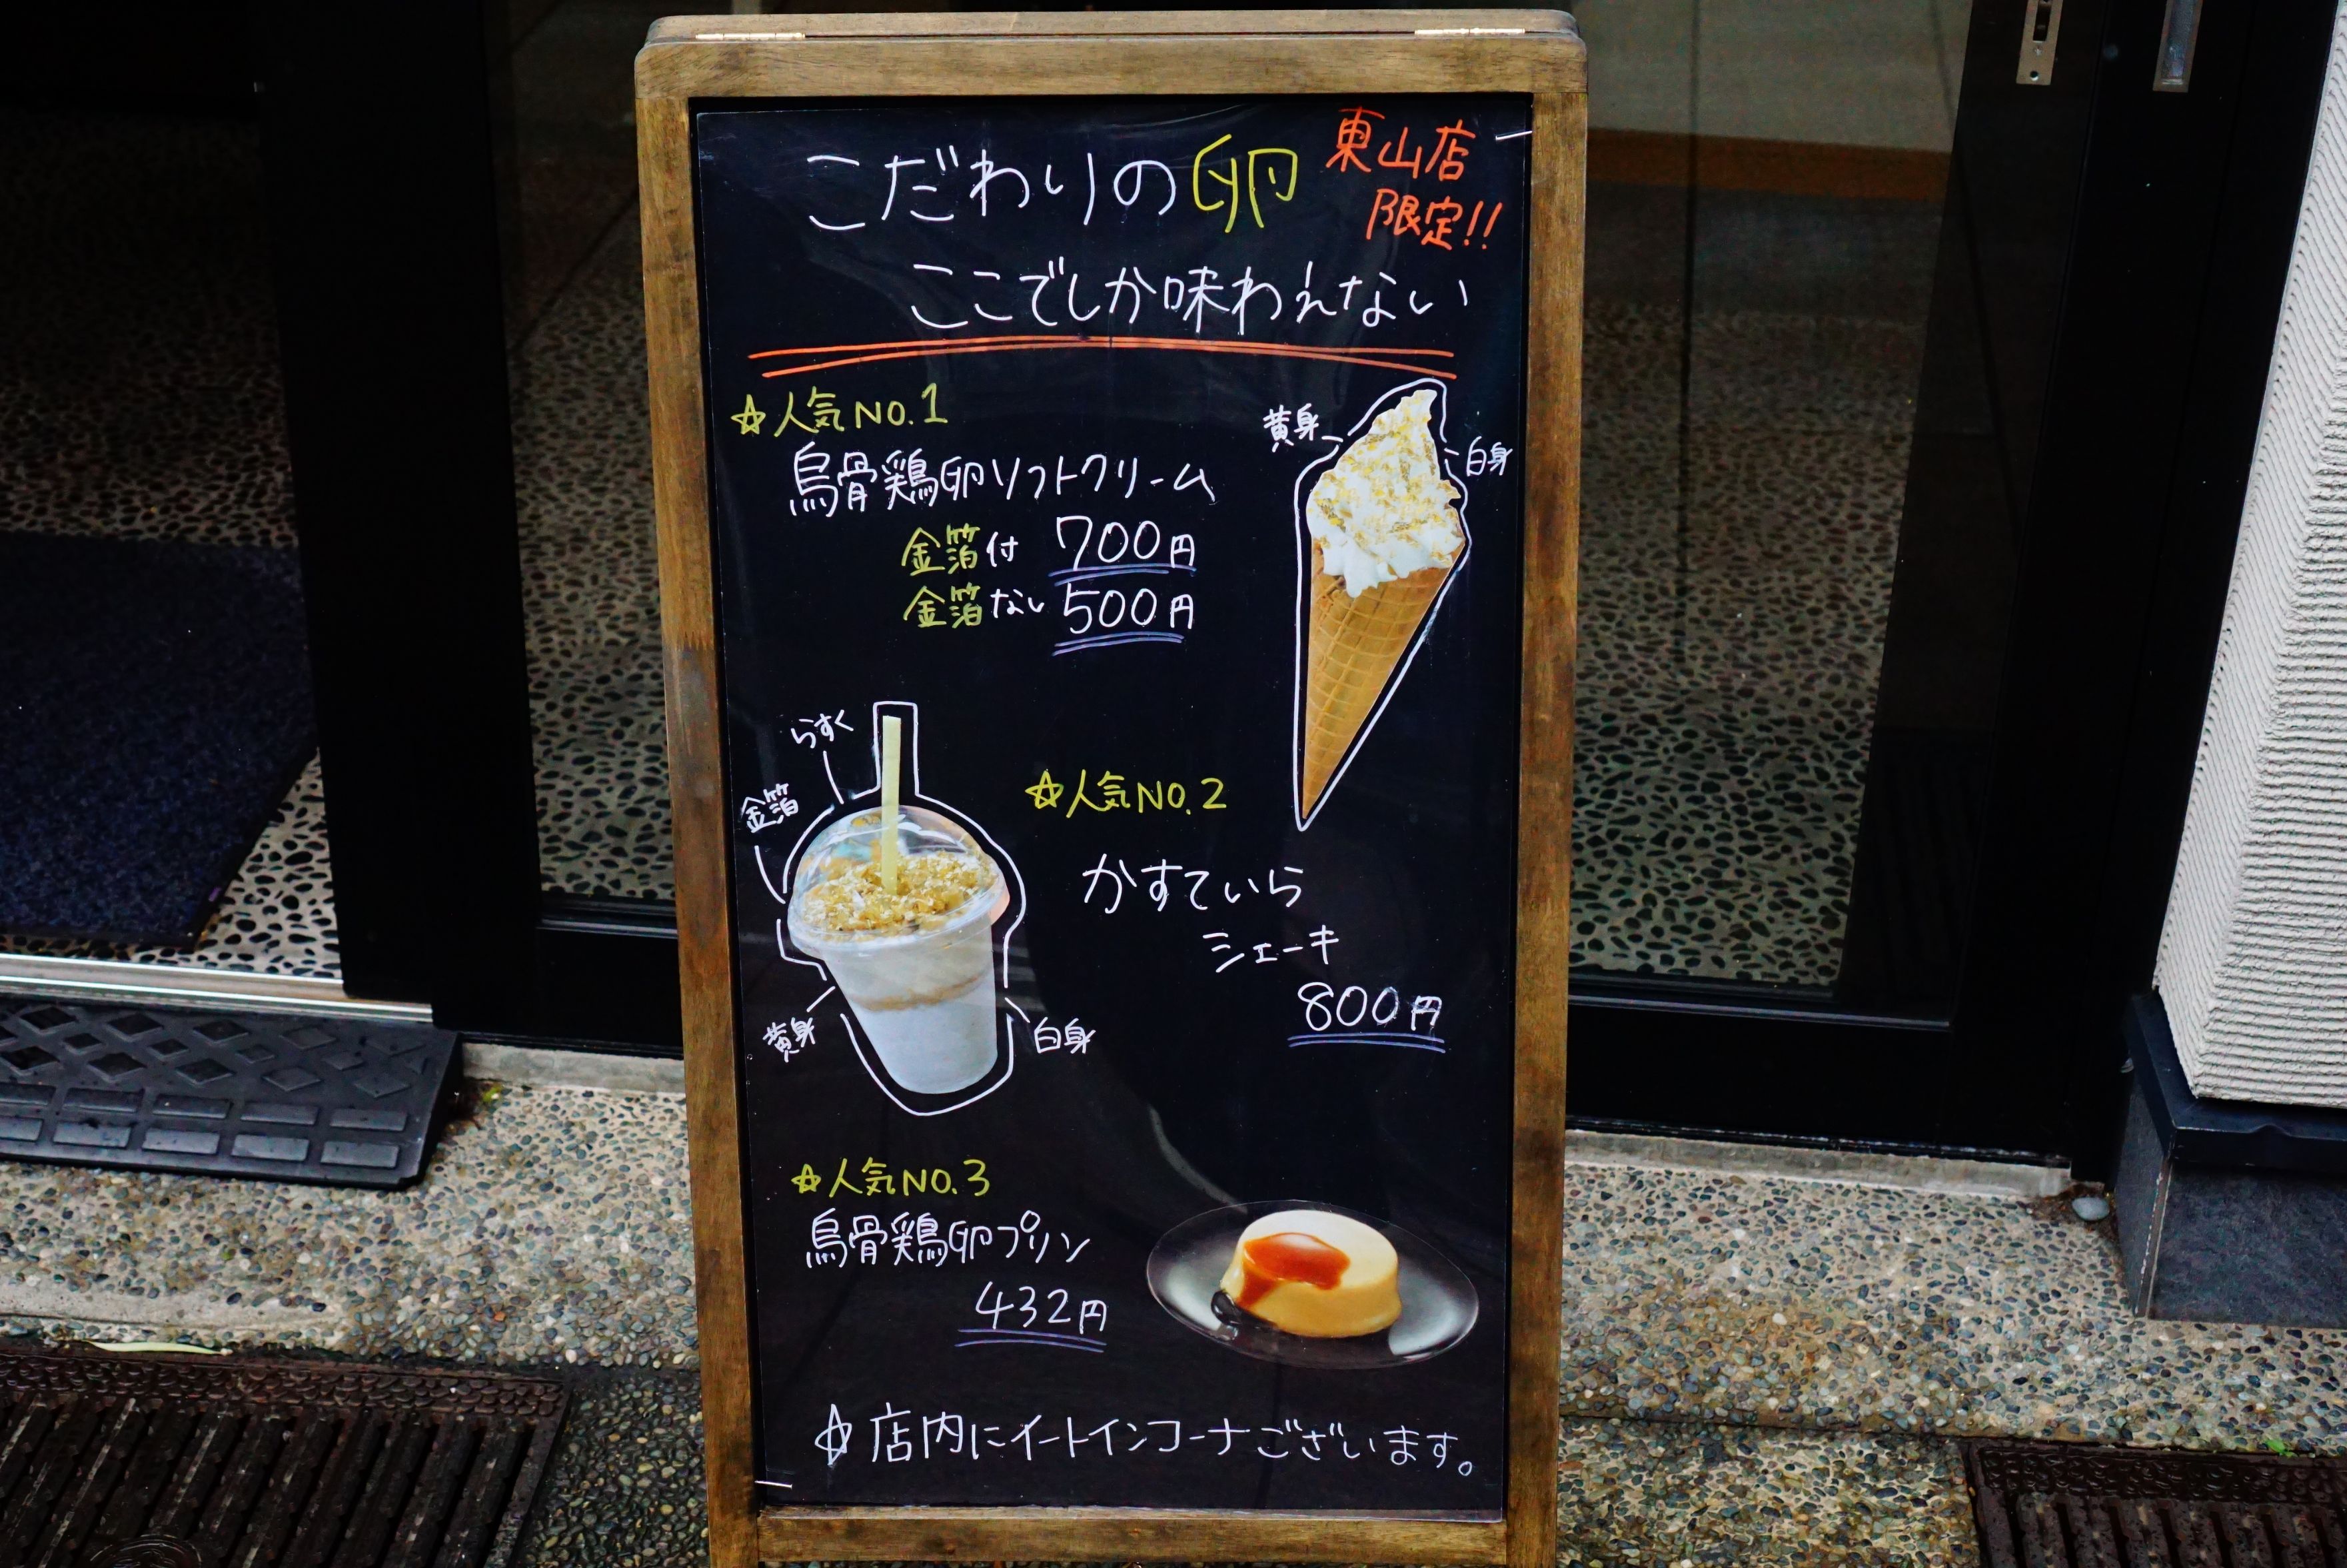 こだわりの卵
東山店
限定!!
ここでしか味わえない
☆人気NO.1
烏骨鶏卵ソフトクリーム
金箔付 700円
金箔なし 500円
黄身
白身
らすく
金箔
黄身
白身
☆人気NO.2
かすていら
シェーキ
800円
☆人気NO.3
烏骨鶏卵プリン
432円
☆店内にイートインコーナございます。